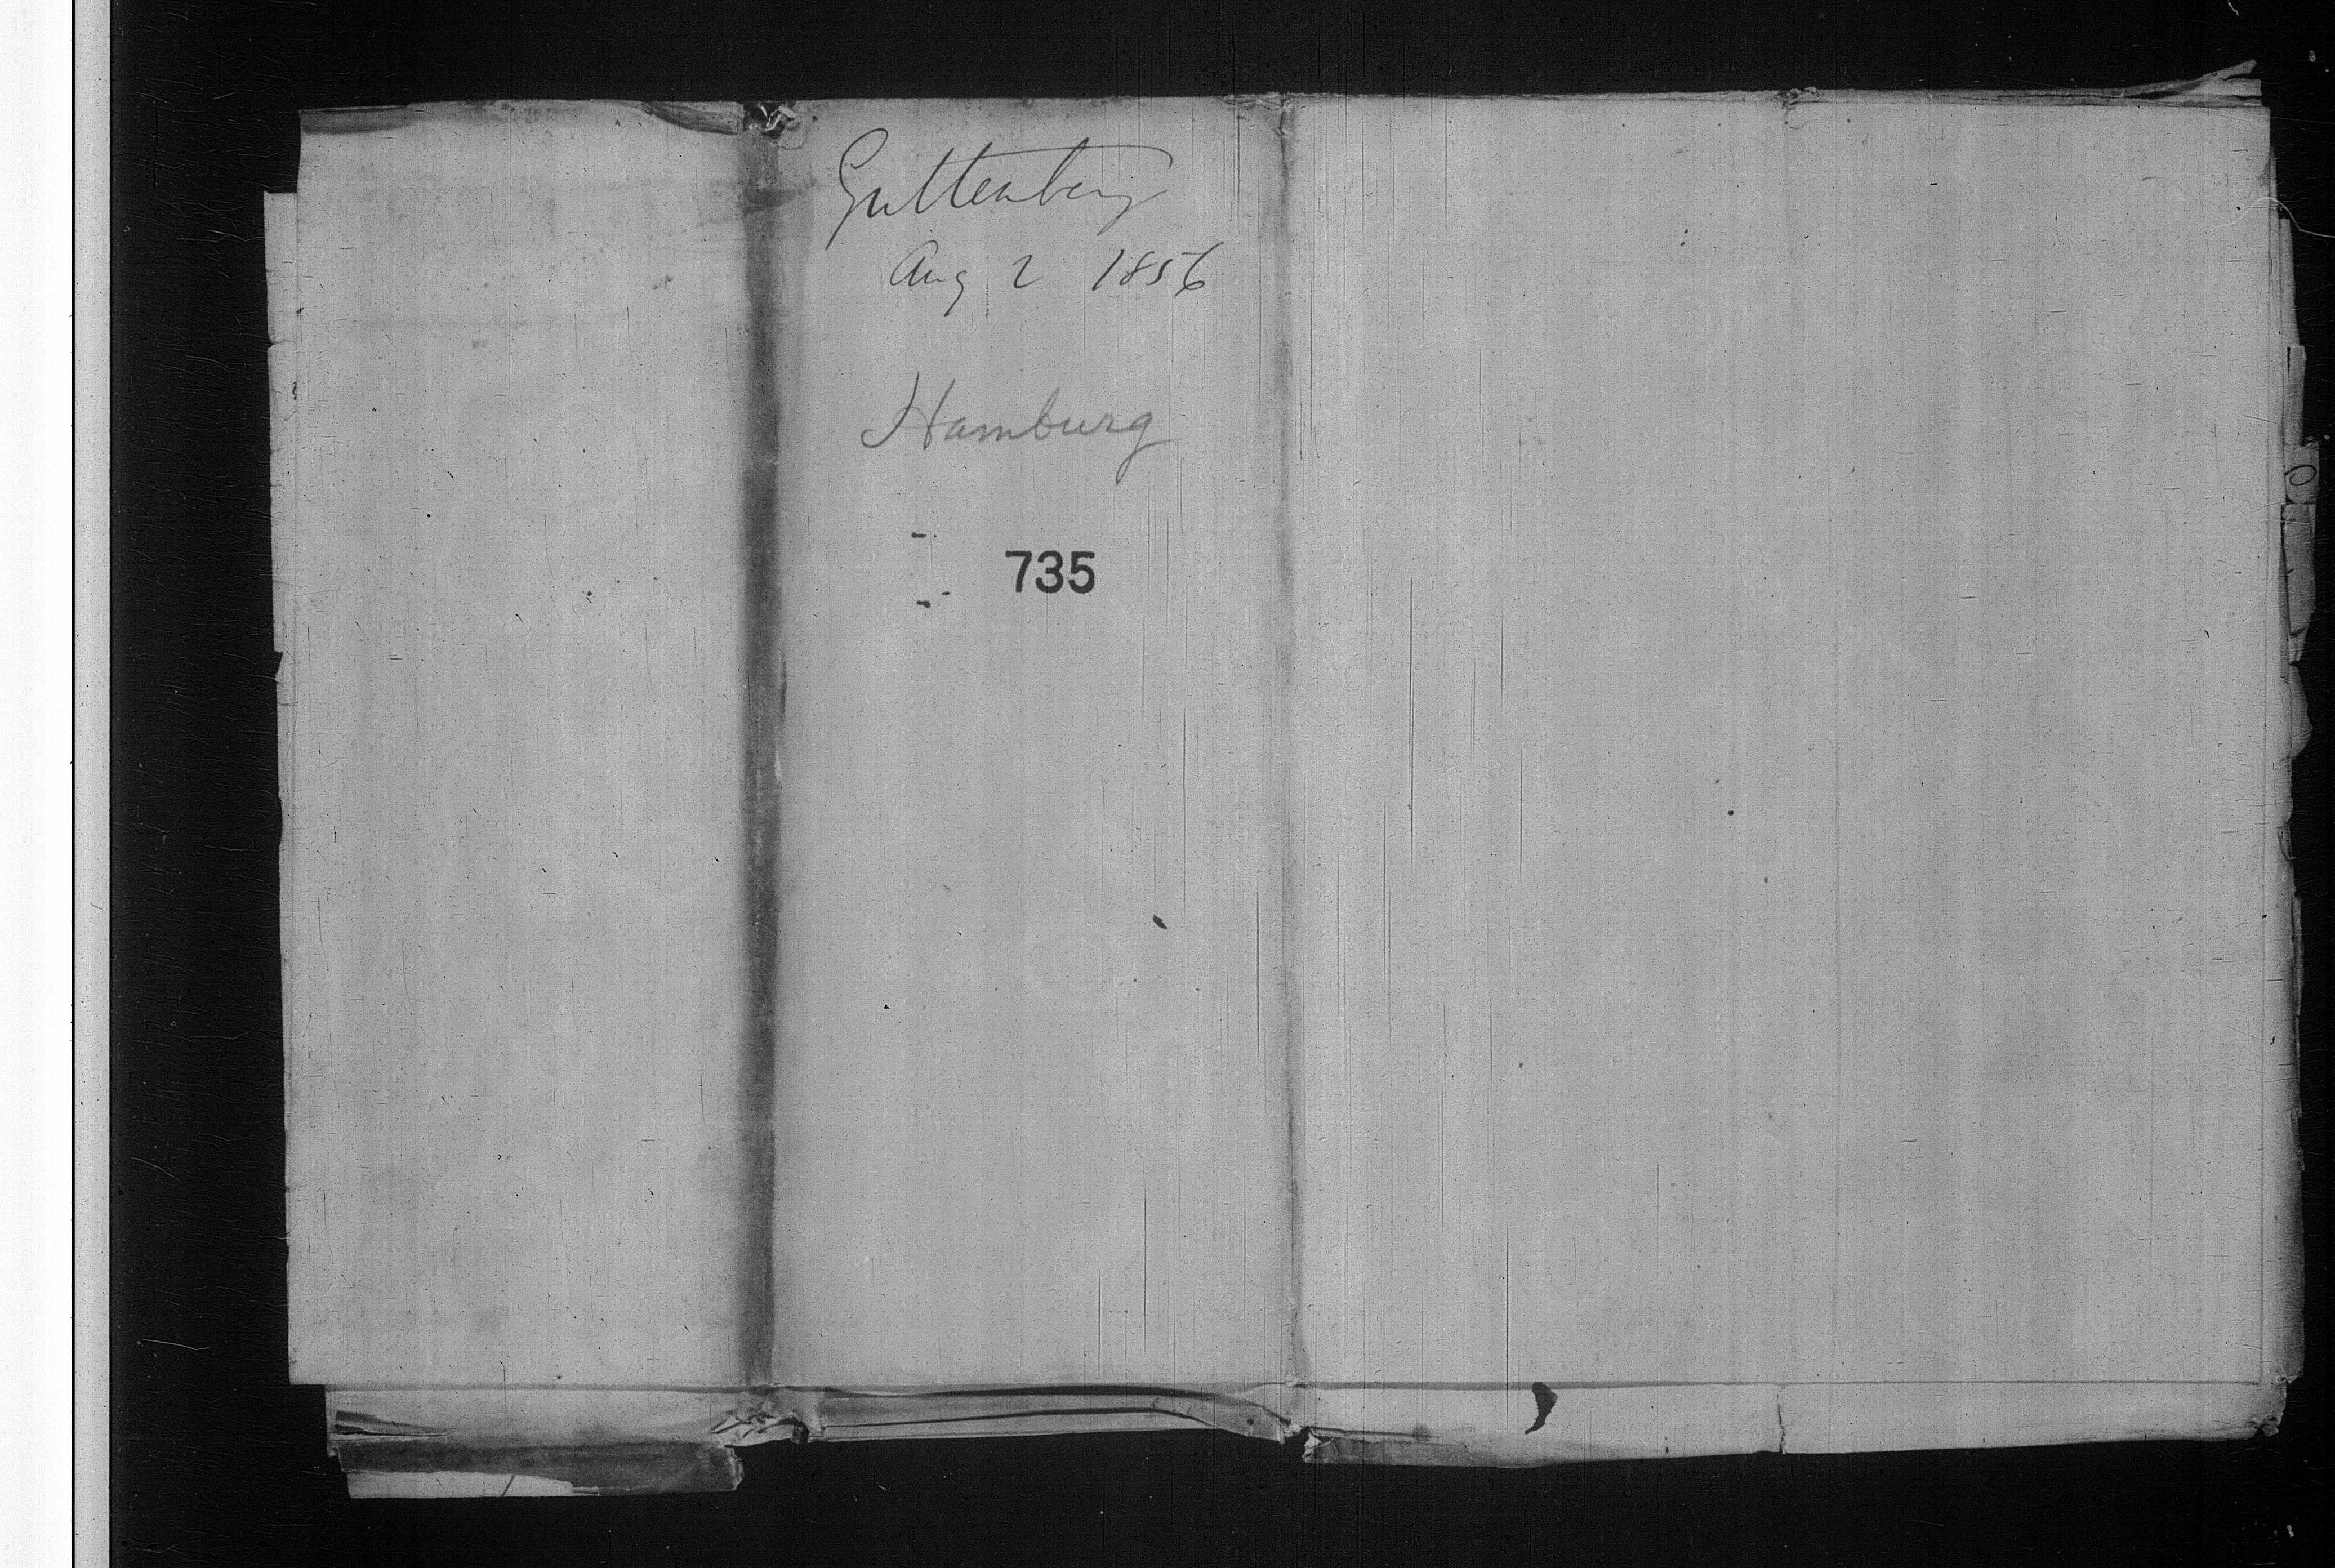 Guttenberg
Aug 2 1856
Hamburg
735